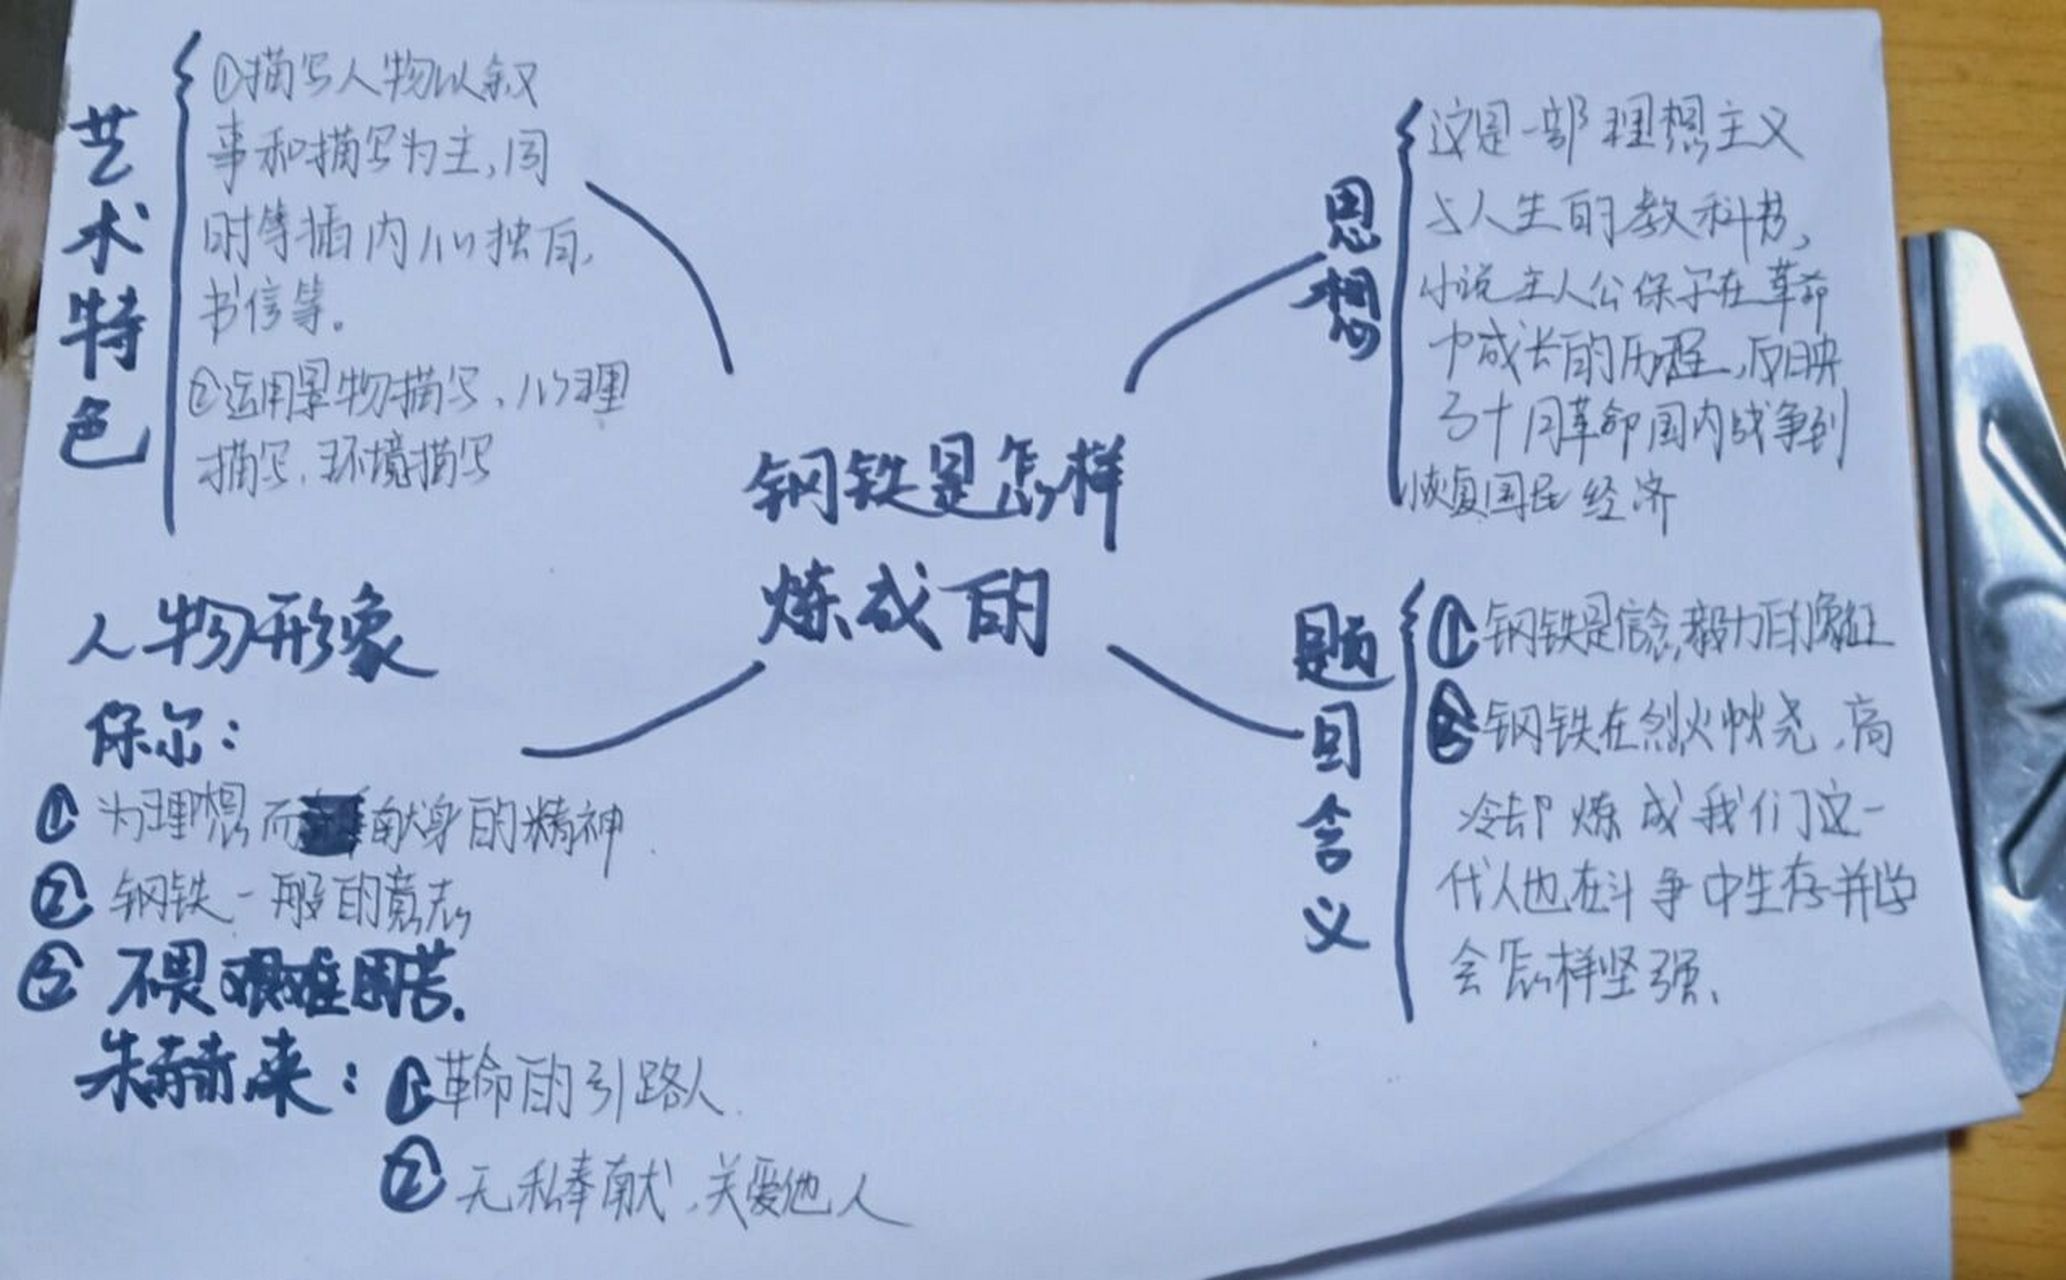 艺术特色
①描写人物以叙
事和描写为主,同
时等插内心独白,
书信等。
②运用景物描写、心理
描写、环境描写
钢铁是怎样
炼成的
思想
这是一部理想主义
与人生的教科书,
小说主人公保尔在革命
中成长的历程,反映
了十月革命国内战争到
恢复国民经济
人物形象
保尔:
①为理想而献身的精神.
②钢铁一般的意志
③不畏艰难困苦.
朱赫来:①革命的引路人.
②无私奉献,关爱他人
题目含义
①钢铁是信念,毅力的象征
②钢铁在烈火燃烧,高
冷却炼成我们这一
代人也在斗争中生存并学
会怎样坚强、